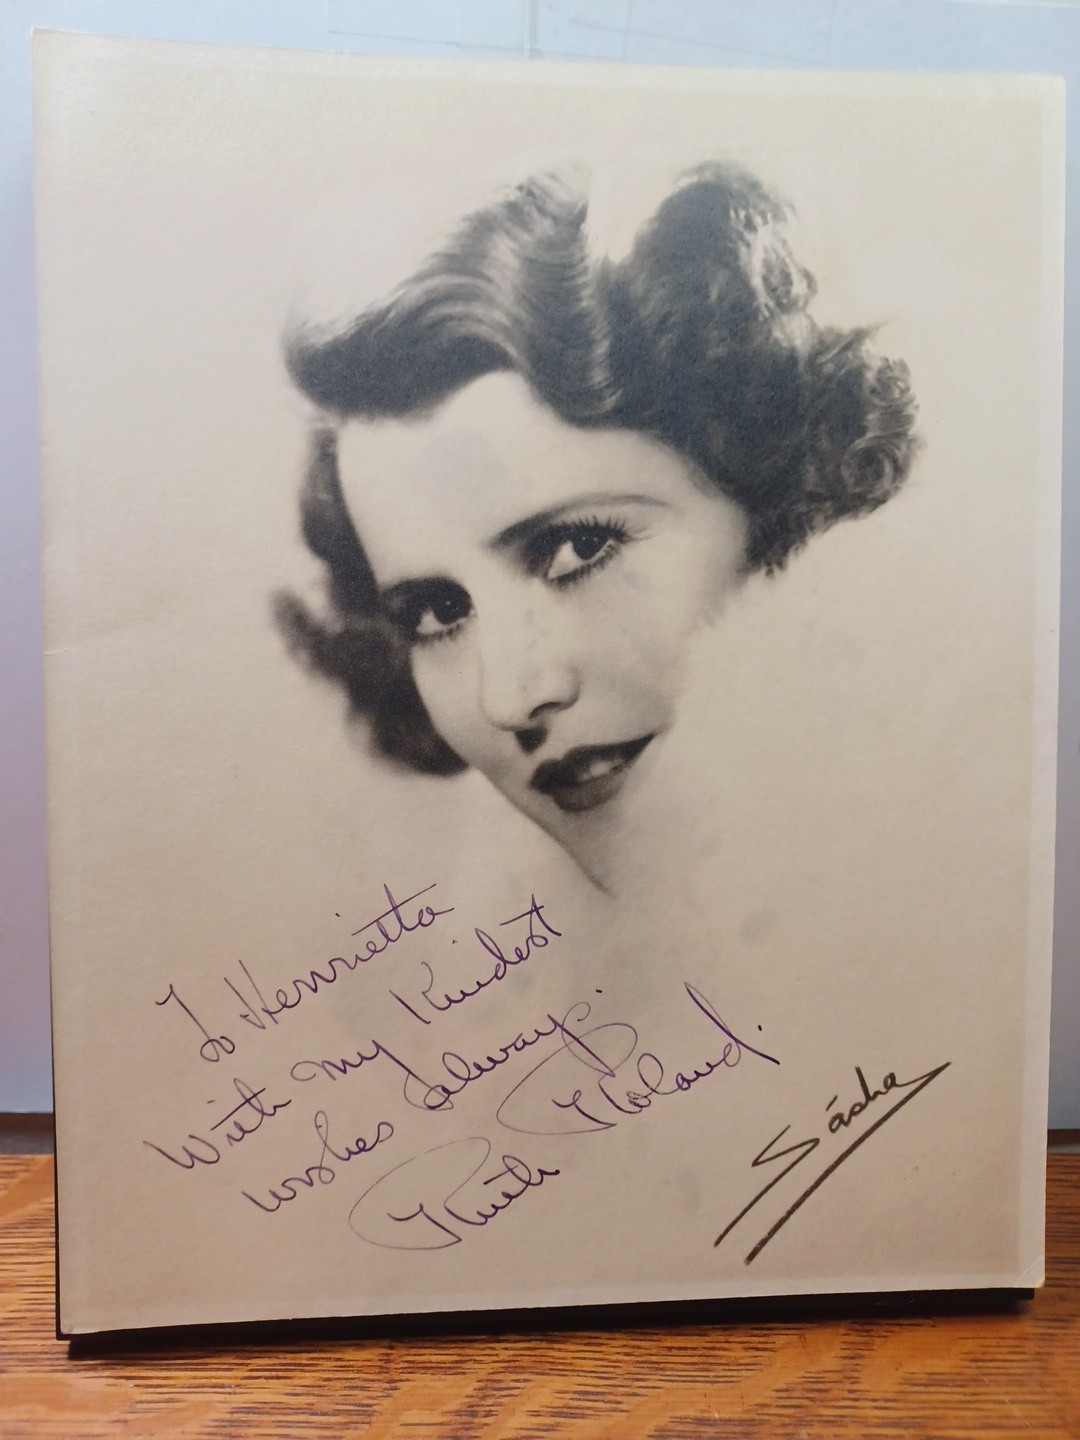 To Henrietta
With my Kindest
wishes always.
Ruth Roland.
Sásha